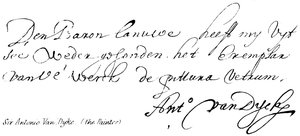 Den Baron Canuwe heeft my Vyt
See Weder gesonden het Exemplar
van V.e Werck de pittura veterum.
Ant.o van Dyck
Sir Antonio Van Dyke (the Painter)